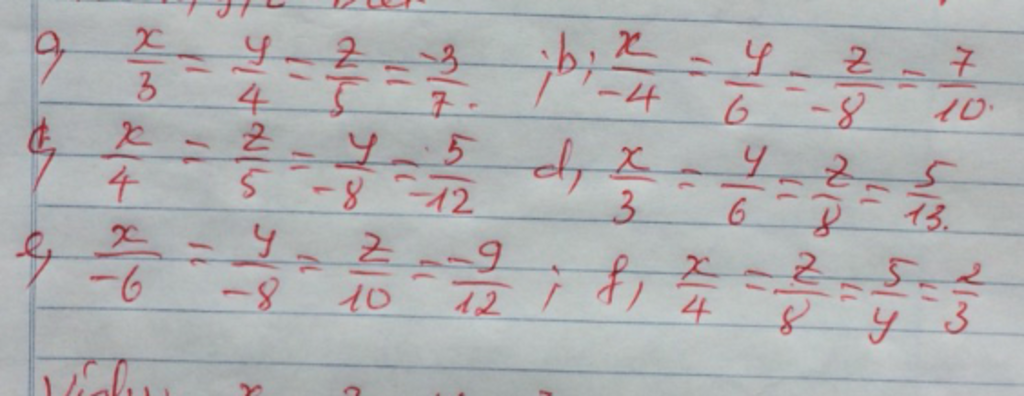 a, x/3 = y/4 = z/5 = -3/7. ; b; x/-4 = y/6 = z/-8 = 7/10.
c, x/4 = z/5 = y/-8 = 5/-12 d, x/3 = y/6 = z/8 = 5/13.
e, x/-6 = y/-8 = z/10 = -9/12 ; f, x/4 = z/8 = 5/y = 2/3